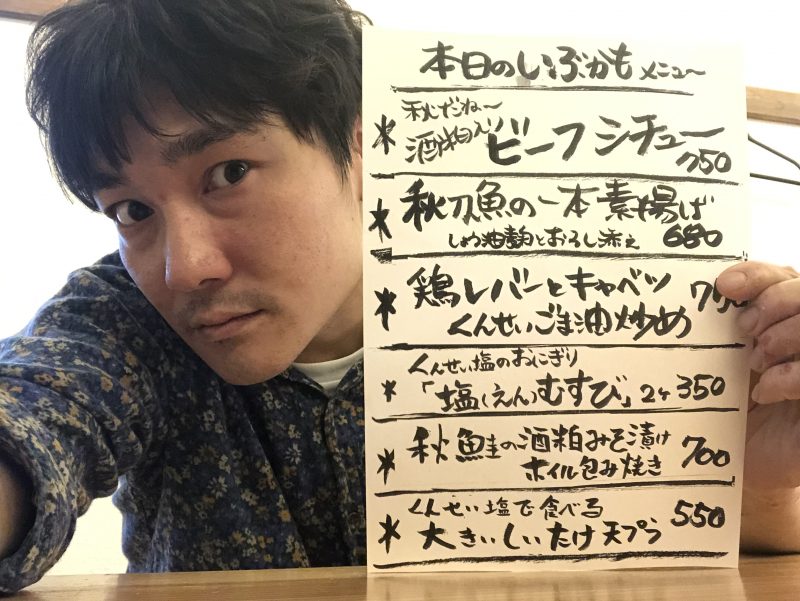 本日のいぶかもメニュー
秋だね〜
酒粕入ビーフシチュー 750
秋刀魚の一本素揚げ
しょう油麹とおろし添え 680
鶏レバーとキャベツ
くんせいごま油炒め
くんせい塩のおにぎり
「塩(えん)むすび」2ヶ 350
秋鮭の酒粕みそ漬け
ホイル包み焼き 700
くんせい塩で食べる
大きいしいたけ天プラ 550